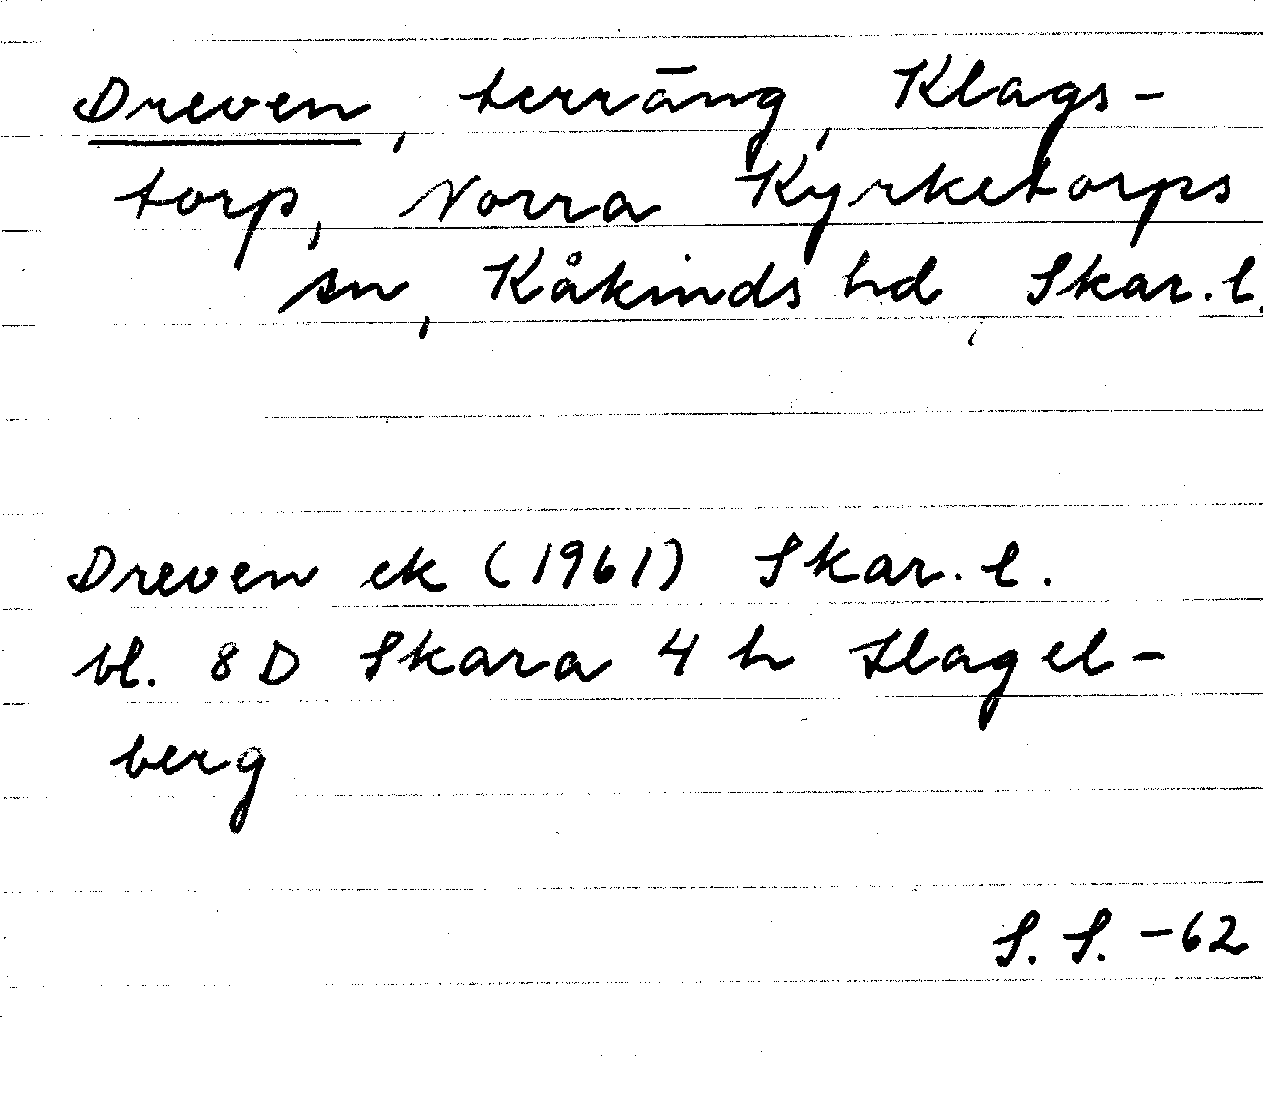 Dreven, terräng, Klags-
torp, Norra Kyrketorps
sn, Kåkinds hd, Skar. l.
Dreven ek (1961) Skar. l.
bl. 8 D Skara 4 h Hagel-
berg
S. S. -62